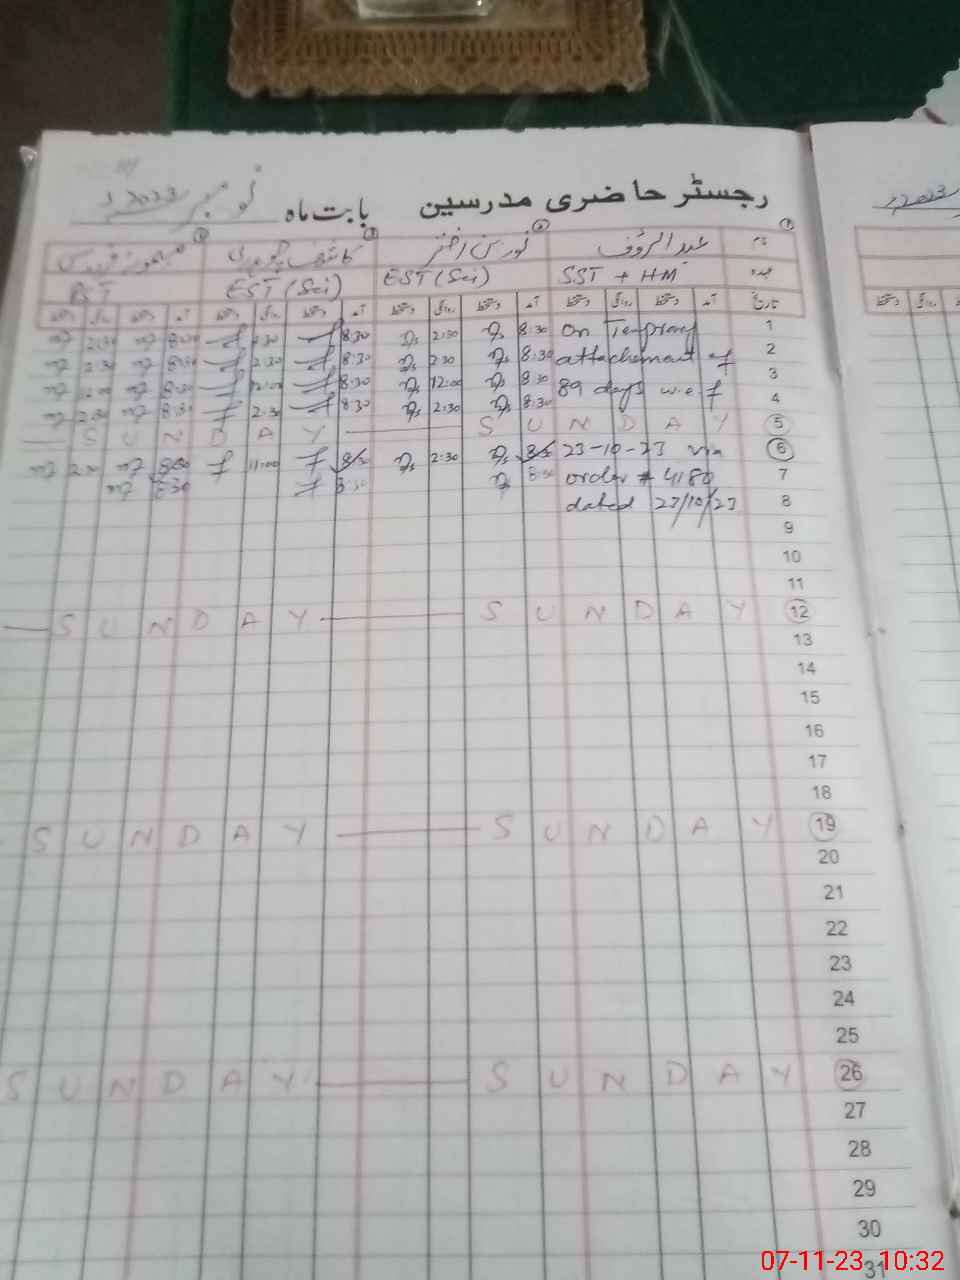 رجسٹر حاضری مدرسین بابت ماہ نومبر 2023ء
2023ء
نام عبدالرؤف نورین اختر کاشف چوہدری
عہدہ SST + HM EST (Sci) EST (Sci) PST
تاریخ آمد دستخط روانگی دستخط آمد دستخط روانگی دستخط آمد دستخط روانگی دستخط آمد دستخط روانگی دستخط
1 On Temprary 8:30 2:30 8:30 2:30 8:30 2:30
2 attachement of 8:30 2:30 8:30 2:30 8:30 2:30
3 89 days w.e.f 8:30 12:00 8:30 12:00 8:30 12:00
4 8:30 2:30 8:30 2:30 8:30 2:30
5 SUNDAY SUNDAY
6 23-10-23 via 8:30 2:30 8:30 11:00 8:30
7 order # 4180 8:30 8:30 8:30
8 dated 23/10/23
9
10
11
12 SUNDAY SUNDAY
13
14
15
16
17
18
19 SUNDAY SUNDAY
20
21
22
23
24
25
26 SUNDAY SUNDAY
27
28
29
30
31
07-11-23 10:32